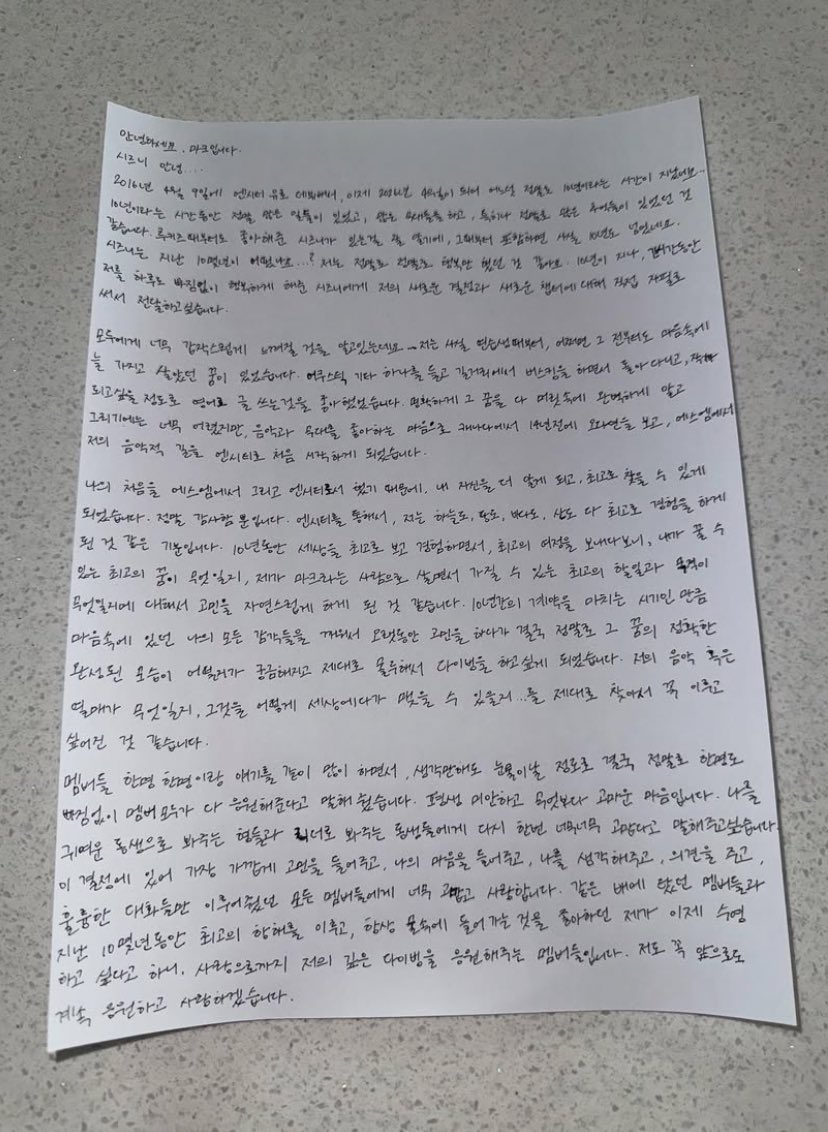 안녕하세요, 마크입니다.
시즈니 안녕....
2016년 4월 9일에 엔시티 유로 데뷔해서, 이제 2026년 4월이 되어 어느덧 정말로 10년이라는 시간이 지났네요..
10년이라는 시간동안 정말 많은 일들이 있었고, 많은 하고, 특히나 정말로 많은 추억들이 있었던 것
같습니다. 루키즈때부터도 좋아해준 시즈니가 있는걸 잘 알기에, 그때부터 포함하면 사실 10년도 넘었네요.
시즈니는 지난 10몇년이 어땠나요...? 저는 정말로 정말로 행복만 했던 것 같아요. 10년이 지나, 긴시간동안
저를 하루도 빠짐없이 행복하게 해준 시즈니에게 저의 새로운 결정과 새로운 챕터에 대해 직접 자필로
써서 전달하고싶습니다.
모두에게 너무 갑작스럽게 느껴질 것을 알고있는데요.. 저는 사실 연습생때부터, 어쩌면 그 전부터도 마음속에
늘 가지고 살았던 꿈이 있었습니다. 어쿠스틱 기타 하나를 들고 길거리에서 버스킹을 하면서 돌아다니고, 작가
되고싶을 정도로 영어로 글 쓰는것을 좋아했었습니다. 명확하게 그 꿈을 다 머릿속에 완벽하게 알고
그리기에는 너무 어렸지만, 음악과 무대를 좋아하는 마음으로 캐나다에서 14년전에 오디션을 보고, 에스엠에서
저의 음악적 길을 엔시티로 처음 시작하게 되었습니다.
나의 처음을 에스엠에서 그리고 엔시티로서 했기 때문에, 내 자신을 더 알게 되고, 최고로 찾을 수 있게
되었습니다. 정말 감사할 뿐입니다. 엔시티를 통해서, 저는 하늘도, 땅도, 바다도, 산도 다 최고로 경험을 하게
된 것 같은 기분입니다. 10년동안 세상을 최고로 보고 경험하면서, 최고의 여정을 보내다보니, 내가 꿀 수
있는 최고의 꿈이 무엇일지, 제가 마크라는 사람으로 살면서 가질 수 있는 최고의 할일과 목적이
무엇일지에 대해서 고민을 자연스럽게 하게 된 것 같습니다. 10년간의 계약을 마치는 시기인 만큼
마음속에 있던 나의 모든 감각들을 깨워서 오랫동안 고민을 하다가 결국 정말로 그 꿈의 정확한
완성된 모습이 어떨지가 궁금해지고 제대로 몰두해서 다이빙을 하고싶게 되었습니다. 저의 음악 혹은
열매가 무엇일지, 그것을 어떻게 세상에다가 맺을 수 있을지...를 제대로 찾아서 꼭 이루고
싶어진 것 같습니다.
멤버들 한명 한명이랑 얘기를 같이 많이 하면서, 생각만해도 눈물이날 정도로 결국 정말로 한명도
빠짐없이 멤버 모두가 다 응원해준다고 말해 줬습니다. 평생 미안하고 무엇보다 고마운 마음입니다. 나를
귀여운 동생으로 봐주는 형들과 리더로 봐주는 동생들에게 다시 한번 너무너무 고맙다고 말해주고싶습니다.
이 결정에 있어 가장 가깝게 고민을 들어주고, 나의 마음을 들어주고, 나를 생각해주고, 의견을 주고,
훌륭한 대화들만 이루어줬던 모든 멤버들에게 너무 고맙고 사랑합니다. 같은 배에 탔던 멤버들과
지난 10몇년동안 최고의 항해를 이루고, 항상 물속에 들어가는 것을 좋아하던 제가 이제 수영
하고 싶다고 하니, 사랑으로까지 저의 깊은 다이빙을 응원해주는 멤버들입니다. 저도 꼭 앞으로도
계속 응원하고 사랑하겠습니다.